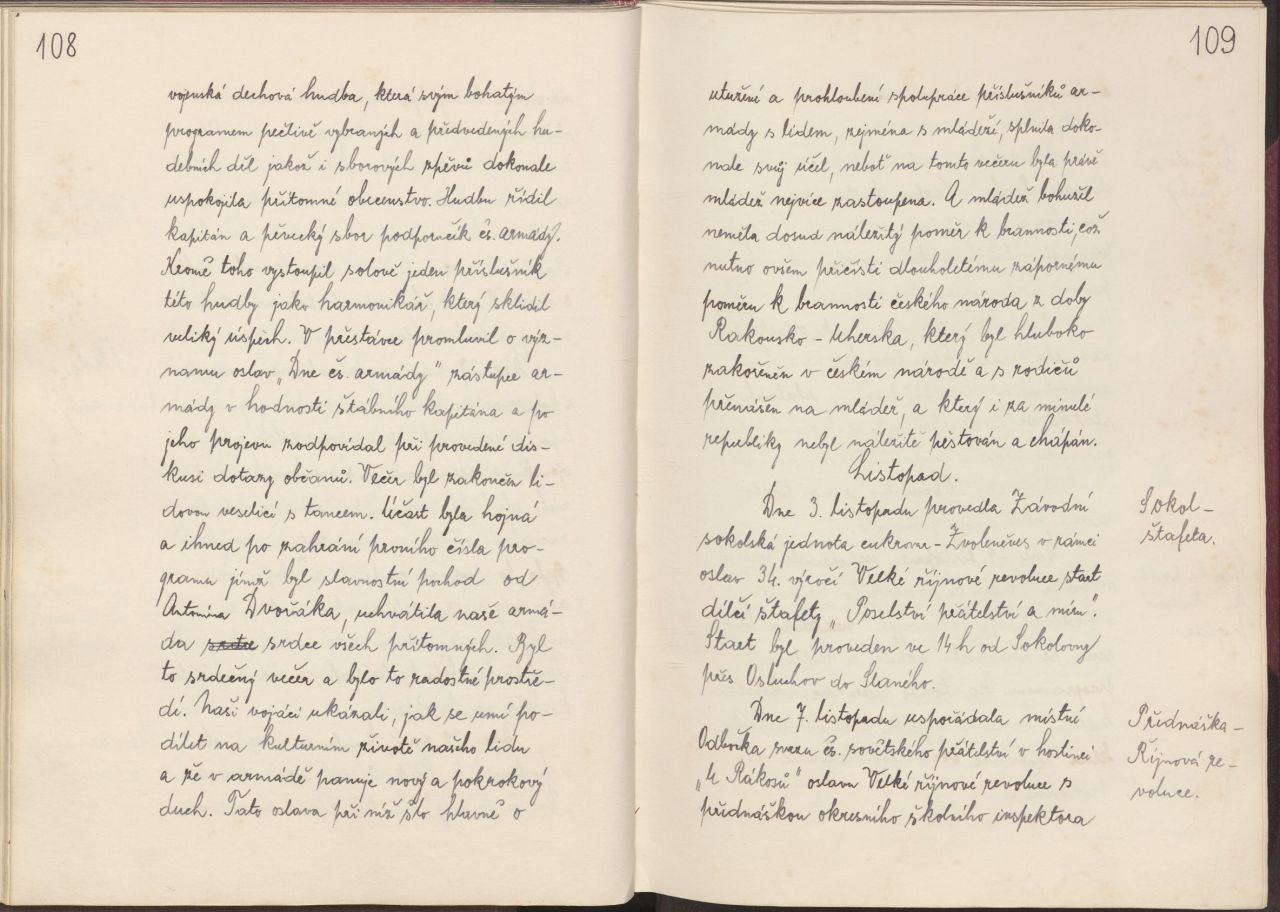 108
vojenská dechová hudba, která svým bohatým
programem pečlivě vybraných a předvedených hu-
debních děl jakož i sborových zpěvů dokonale
uspokojila přítomné obecenstvo. Hudbu řídil
kapitán a pěvecký sbor podporučík čs. armády.
Kromě toho vystoupil solově jeden příslušník
této hudby jako harmonikář, který sklidil
veliký úspěch. V přestávce promluvil o výz-
namu oslav „Dne čs. armády" zástupce ar-
mády v hodnosti štábního kapitána a po
jeho projevu zodpovídal při provedené dis-
kusi dotazy občanů. Večer byl zakončen li-
dovou veselicí s tancem. Účast byla hojná
a ihned po zahrání prvního čísla pro-
gramu jímž byl slavnostní pochod od
Antonína Dvořáka, uchvátila naše armá-
da srdce srdce všech přítomných. Byl
to srdečný večer a bylo to radostné prostře-
dí. Naši vojáci ukázali, jak se umí po-
dílet na kulturním životě našeho lidu
a že v armádě panuje nový a pokrokový
duch. Tato oslava při níž šlo hlavně o
109
utužení a prohloubení spolupráce příslušníků ar-
mády s lidem, zejména s mládeží, splnila doko-
nale svůj účel, neboť na tomto večeru byla právě
mládež nejvíce zastoupena. A mládež bohužel
neměla dosud náležitý poměr k brannosti, což
nutno ovšem přičísti dlouholetému zápornému
poměru k brannosti českého národa z doby
Rakousko-Uherska, který byl hluboko
zakořeněn v českém národě a s rodičů
přenášen na mládež, a který i za minulé
republiky nebyl náležitě pěstován a chápán.
Listopad.
Dne 3. listopadu provedla Závodní
sokolská jednota cukrovar-Zvoleněves v rámci
oslav 34. výročí Velké říjnové revoluce start
dílčí štafety „Poselství přátelství a míru".
Start byl proveden ve 14 h od Sokolovny
přes Osluchov do Slaného.
Sokol-
štafeta.
Dne 7. listopadu uspořádala místní
Odbočka svazu čs. sovětského přátelství v hostinci
„U Rákosů" oslavu Velké říjnové revoluce s
přednáškou okresního školního inspektora
Přednáška-
Říjnová re-
voluce.